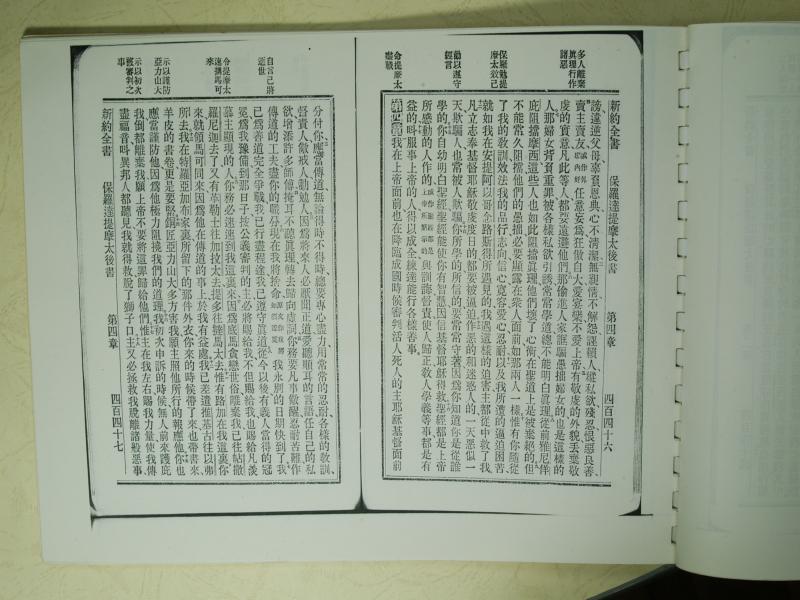 多人離棄
眞理行作
諸惡
保羅勉提
摩太效己
勸以遵守
經言
令提摩太
盡職
新約全書 保羅達提摩太後書 第四章 四百四十六
謗違逆父母辜負恩典心不清潔無親情不解怨謀賴人縱私欲殘忍恨惡良善
賣主賣友 任意妄爲狂傲自大愛宴樂不愛上帝有敬虔的外貌丟棄敬
虔的實意凡此等人都要遠避他們那偷進人家誆騙愚拙婦女的也是這樣的
人那婦女背負重罪被各樣私欲引誘常常學道總不能明白眞理從前雅尼佯
庇阻擋摩西這些人也如此阻擋眞理他們壞了心術在聖道上是被棄絕的但
不能常久阻擋他們的愚拙必要顯露在衆人面前如那兩人一樣惟有你隨從
了我的敎訓效法我的品行志向信心寬容愛心忍耐以及我所遭的逼迫困苦
就如我在安提阿以哥念路斯得所遇見的我遇這樣的迫害主都從中救了我
凡立志奉基督耶穌敬虔度日的都要被逼迫作惡的和迷惑人的一天惡似一
天欺騙人也常被人欺騙你所學的所信的要常常守著因爲你知道你是從誰
學的你自幼明白聖經聖經能使你有智慧因信基督耶穌得救聖經都是上帝
所感動的人作的 與訓誨督責使人歸正敎人學義等事都是有
益的叫服事上帝的人得以成全練達能行各樣善事
第四章我在上帝面前也在降臨成國時候審判活人死人的主耶穌基督面前
自言己將
逝世
令提摩太
速攜馬可
來
示以謹防
亞力山大
示以初次
審判之
事
分付你應當傳道無論得時不得時總要專心盡力用常常的忍耐各樣的敎訓
督責人儆戒人勸勉人因爲將來人必厭聞正道愛聽順耳的言語任自己的私
欲增添許多師傅掩耳不聽眞理轉去歸向虛詞你務要凡事儆醒忍耐苦難作
傳道的工夫盡你的職分現在我將捨命 我永別的日期快到了我
已爲善道完全爭戰我已行盡程途我已遵守眞道從今以後有義人當得的冠
冕爲我豫備到那日子按公義審判的主必將賜給我不但賜給我也賜給凡羨
慕主顯現的人你務必速速到我這裏來因爲底馬貪戀世俗離棄我已往帖撒
羅尼迦去了又有革勒士往加拉太去提多往撻馬太去惟有路加在我這裏你
來就領馬可同來因爲他在傳道的事上於我有益處我已差遣推基古往以弗
所去我在特羅亞加布家裏所留下的那件外衣你來的時候帶了來也帶書來
羊皮的書卷更是要緊銅匠亞力山大多方害我願主照他所行的報應他你也
應當謹防他因爲他極力阻擋我們的道理我初次申訴的時候無人前來護庇
我倒都離棄我願上帝不要將這罪歸給他們惟主在我左右賜我力量使我傳
盡福音叫異邦人都聽見我就得救脫了獅子口主又必拯救我脫離諸般惡事
新約全書 保羅達提摩太後書 第四章 四百四十七